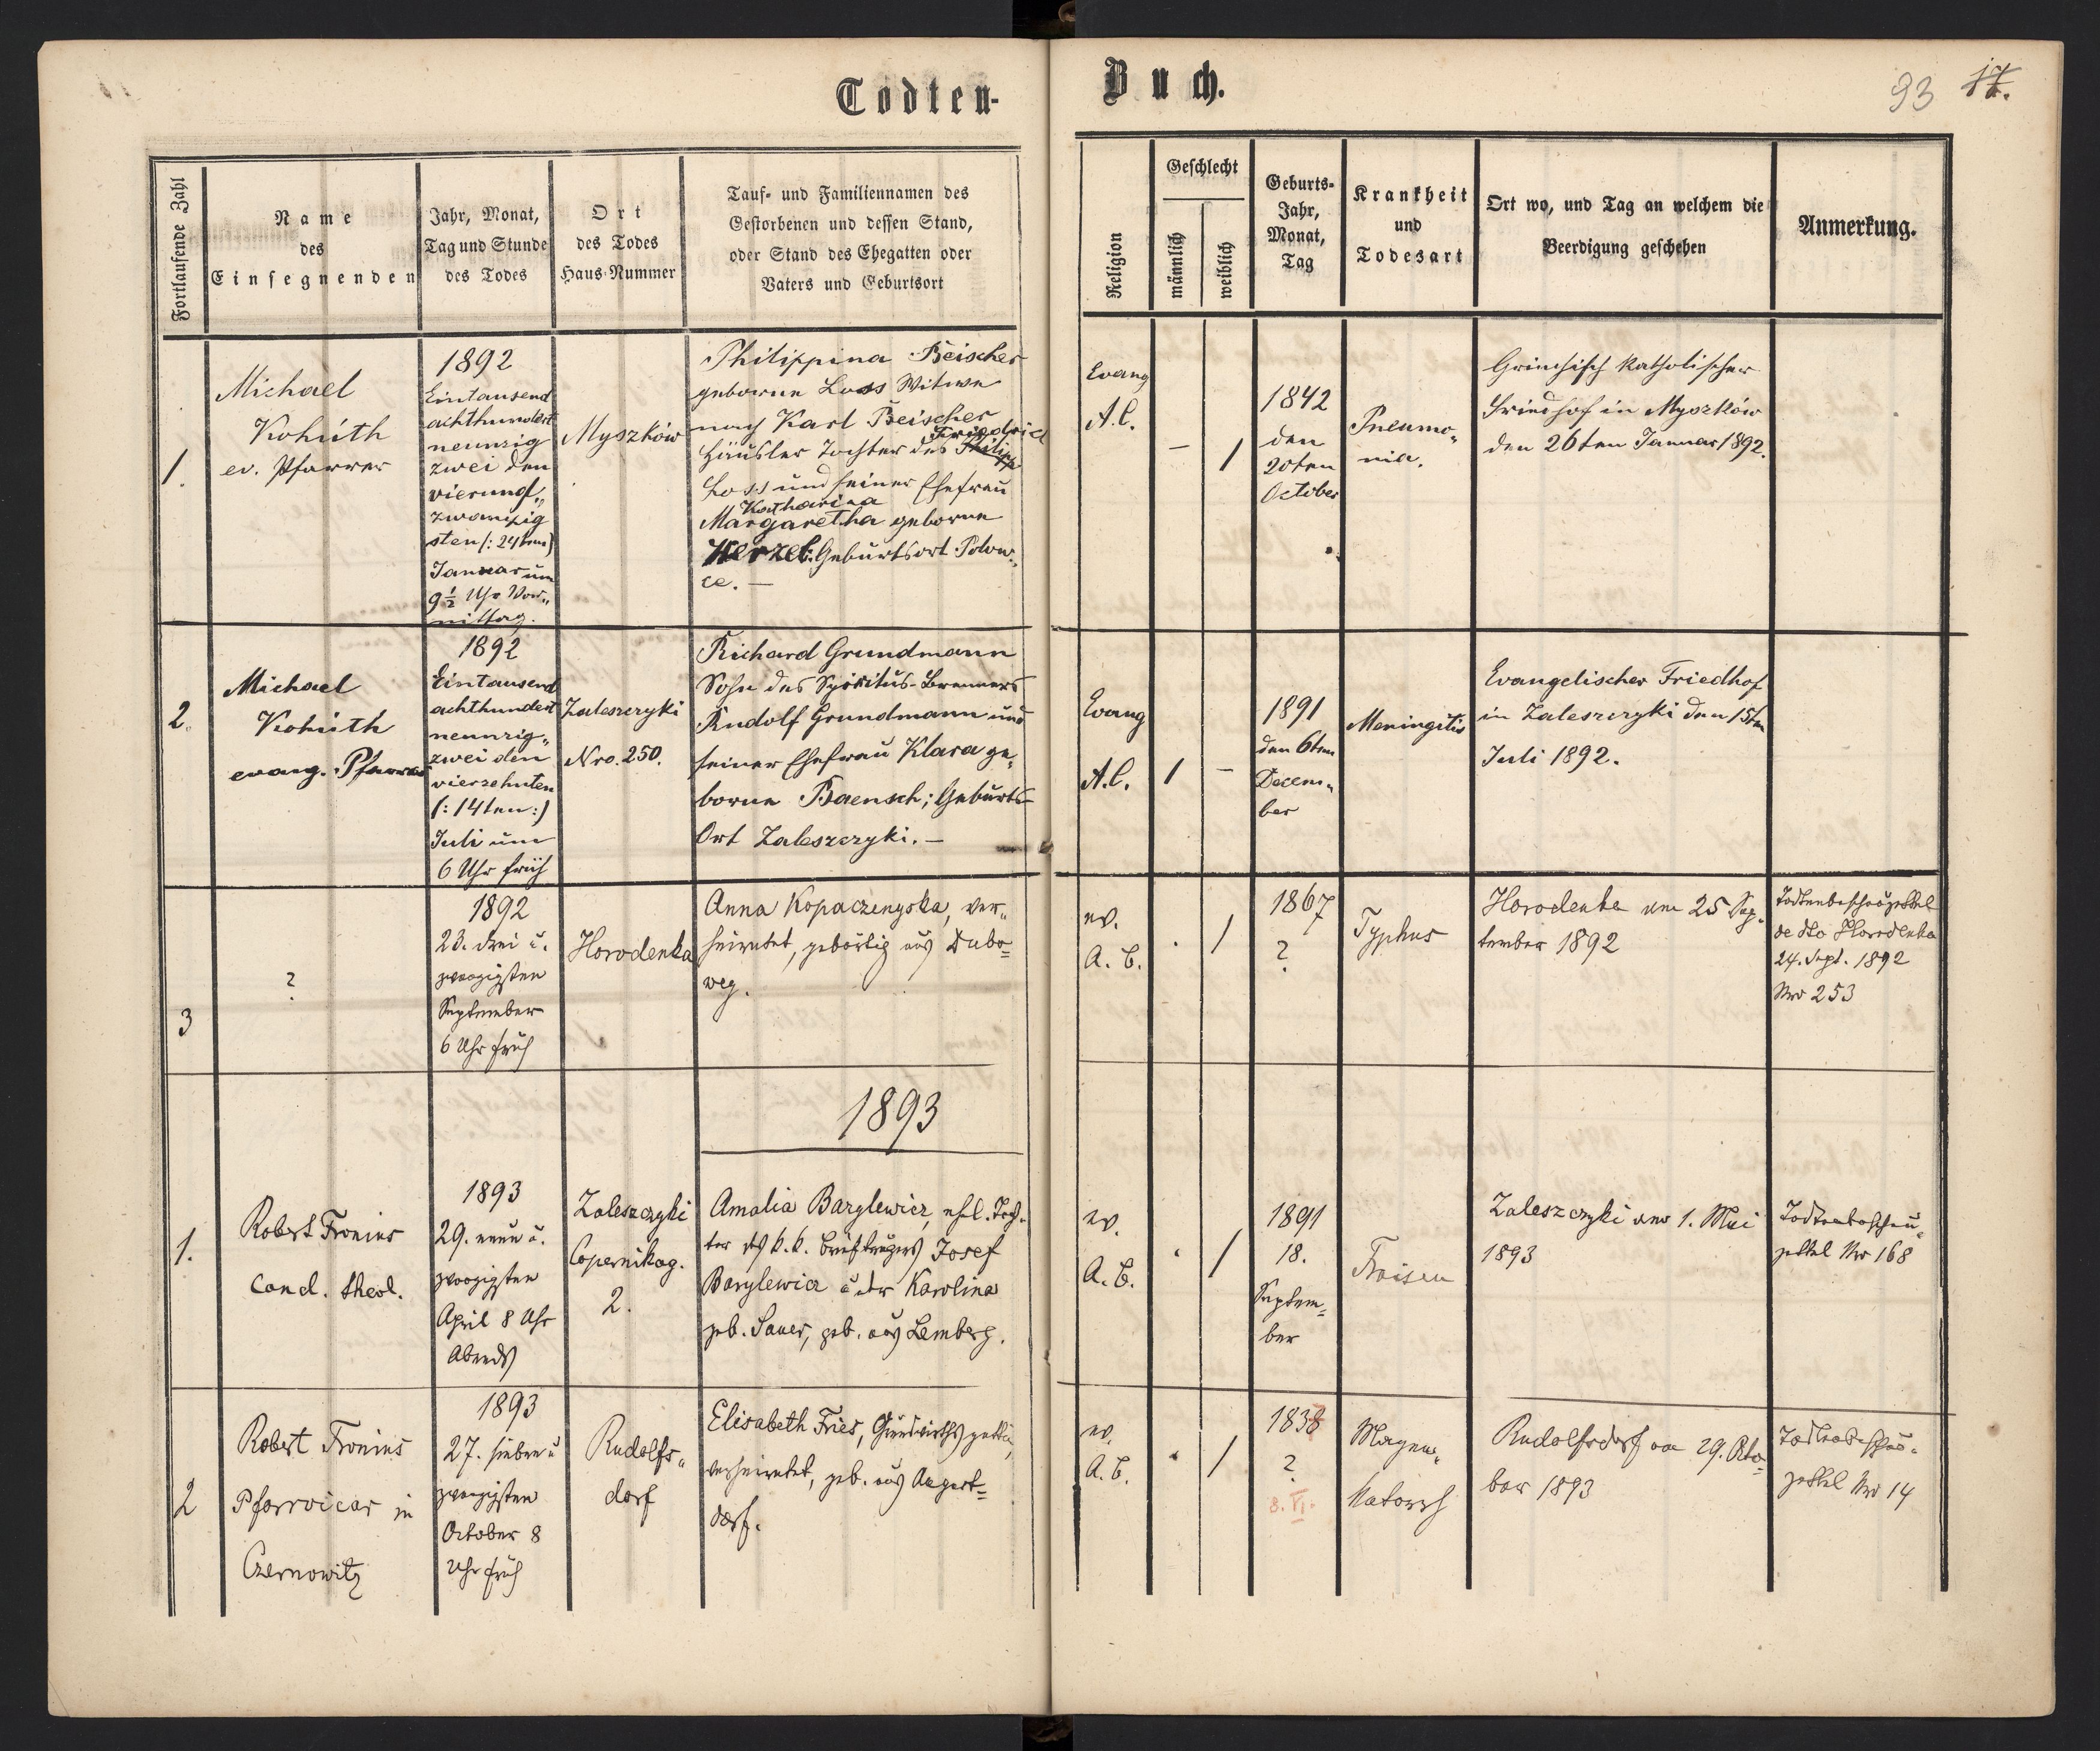 Todten-
Buch.
93 17.
Fortlaufende Zahl
Name
des
Einsegnenden
Jahr, Monat,
Tag und Stunde
des Todes
Ort
des Todes
Haus-Nummer
Tauf- und Familiennamen des
Gestorbenen und dessen Stand,
oder Stand des Ehegatten oder
Vaters und Geburtsort
Religion
Geschlecht
männlich
weiblich
Geburts-
Jahr,
Monat,
Tag
Krankheit
und
Todesart
Ort wo, und Tag an welchem die
Beerdigung geschehen
Anmerkung.
1.
Michael
Kohúth
ev. Pfarrer
1892
Eintausend
achthundert
neunzig
zwei den
vierund„
zwanzig
sten (: 24ten:)
Januar um
9 1/2 Uhr Vor„
mittag.
Myszków
Philippina Beischer
geborne Loss Witwe
nach Karl Beischer
Friedrich
Häusler Tochter des Philipp
Loss und seiner Ehefrau
Katharina
Margaretha geborne
Herzel. Geburtsort Polow„
ce. —
Evang
A.C.
–
1
1842
den
20ten
October
Pneumo„
nia.
Griechisch katholischer
Friedhof in Myszków
den 26ten Januar 1892.
2.
Michael
Kohúth
evang. Pfarrer
1892
Eintausend
achthundert
neunzig„
zwei den
vierzehnten
(: 14ten :)
Juli um
6 Uhr früh
Zaleszczyki
Nro. 250.
Richard Grundmann
Sohn des Spiritus-Brenners
Rudolf Grundmann und
seiner Ehefrau Klara ge„
borne Baensch; Geburts-
Ort Zaleszczyki. —
Evang
A.C.
1
–
1891
den 6ten
Decem„
ber
Meningitis
Evangelischer Friedhof
in Zaleszczyki den 15ten
Juli 1892.
3
?
1892
23. drei u.
zwanzigsten
September
6 Uhr früh
Horodenka
Anna Kopaczenyska, ver„
heiratet, gebürtig aus Dubo=
weg.
ev.
A. B.
.
1
1867
?
Typhus
Horodenka am 25 Sep-
tember 1892
Todtenbeschauzettel
de dto Horodenka
24. Sept. 1892
Nro 253
1893
1.
Robert Fronius
cand. theol.
1893
29. neun u.
zwanzigsten
April 8 Uhr
Abends
Zaleszczyki
Copernikag.
2.
Amalia Barylewicz, ehel. Toch-
ter des k. k. Briefträgers Josef
Barylewicz u. der Karolina
geb. Sauer, geb. aus Lemberg.
ev.
A. B.
.
1
1891
18.
Septem=
ber
Fraisen
Zaleszczyki am 1. Mai
1893
Todtenbeschau„
zettel Nro 168
2
Robert Fronius
Pfarrvicar in
Czernowitz
1893
27. sieben u
zwanzigsten
October 8
Uhr früh
Rudolfs„
dorf
Elisabeth Fries, Grundwirths gattin,
verheiratet, geb. aus Augart=
dorf.
ev.
A. B.
.
1
1838
?
8. VI.
Magen„
katarrh
Rudolfsdorf am 29. Octo=
ber 1893
Todtenbeschau-
zettel Nro 14